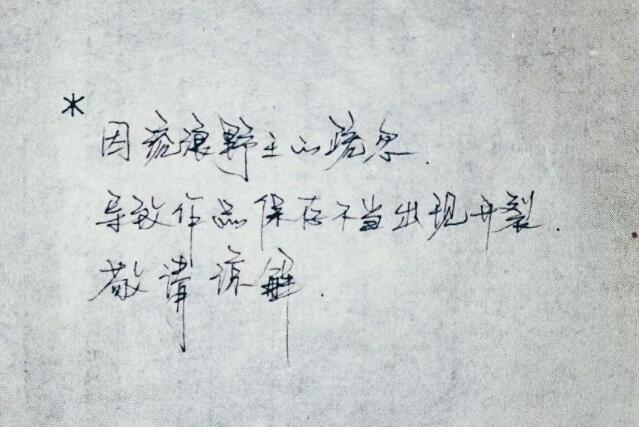 *
因疮浪野主的疏忽.
导致作品保存不当出现开裂.
敬请谅解.